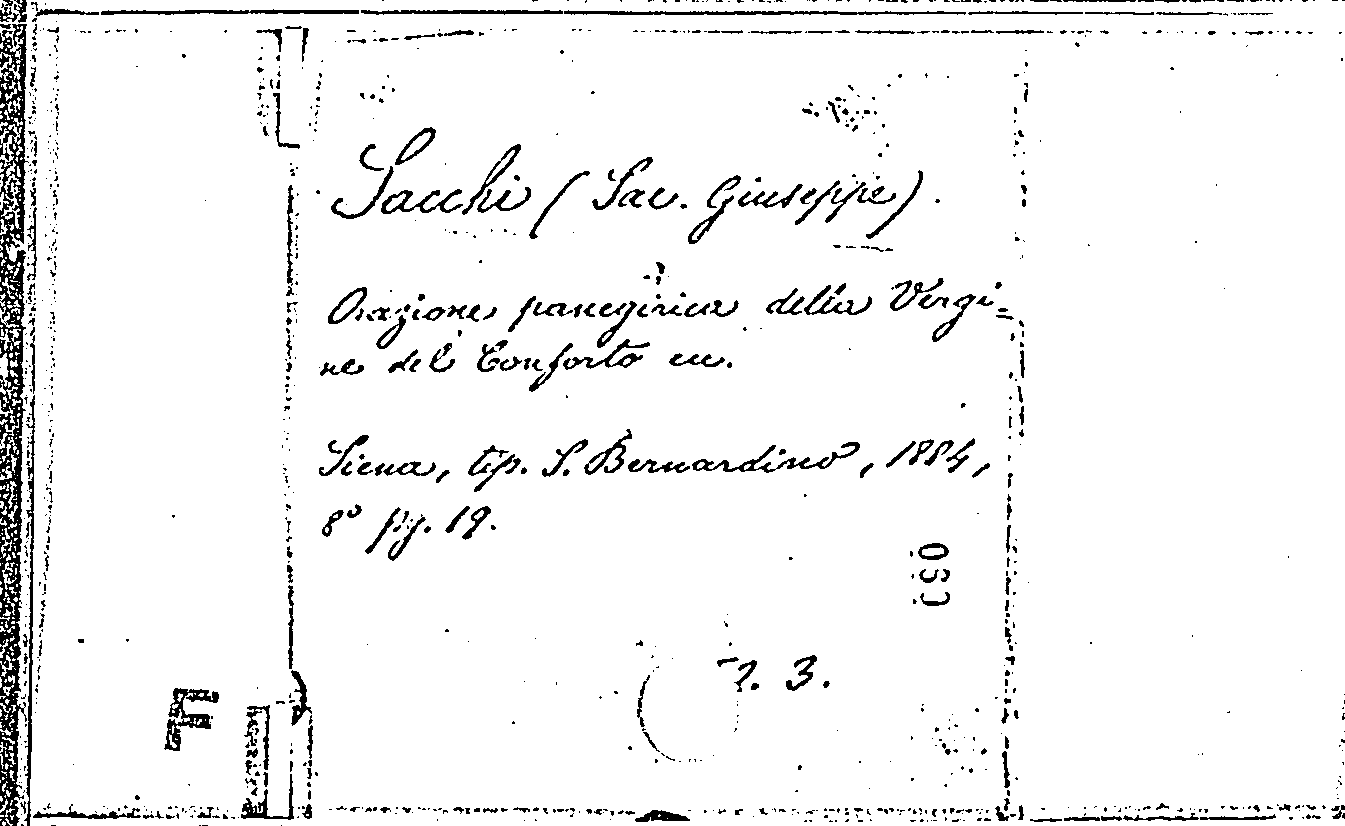 Sacchi (Sac. Giuseppe).
Orazione panegirica della Vergi=
ne del Conforto ec.
Siena, tip. S. Bernardino, 1884,
8° pg. 19.
3.
F